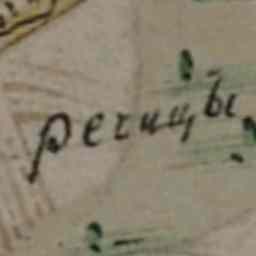 речицы